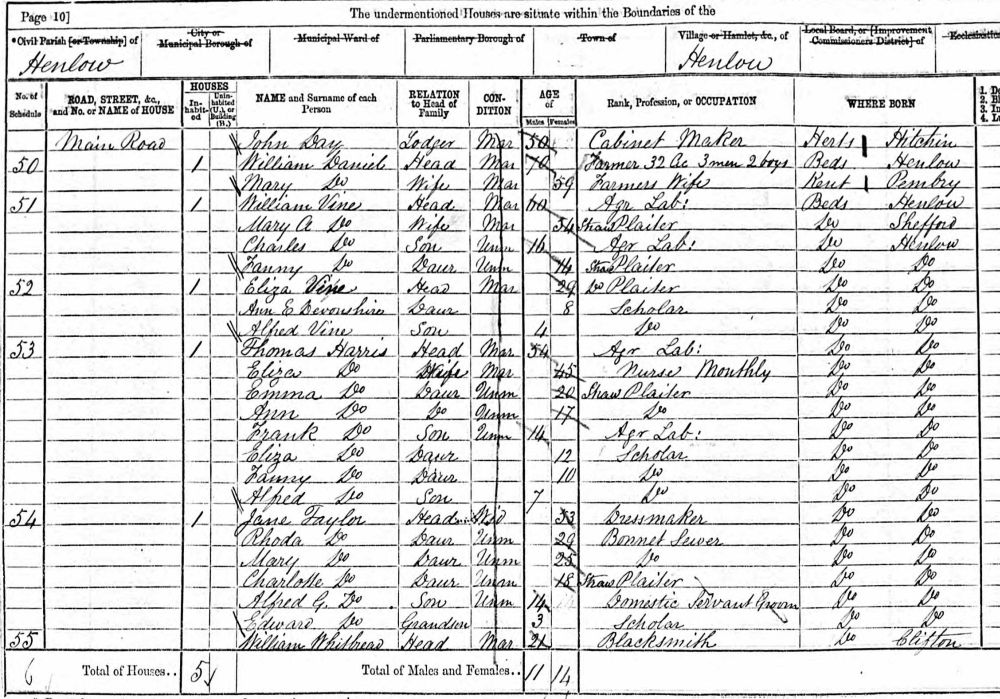 Page 10] The undermentioned Houses are situate within the Boundaries of the
*Civil Parish [or Township] of City or Municipal Borough of Municipal Ward of Parliamentary Borough of Town of Village or Hamlet, &c., of Local Board, or [Improvement Commissioners District] of Ecclesiastic
Henlow Henlow
No. of Schedule ROAD, STREET, &c., and No. or NAME of HOUSE HOUSES Inhabited Uninhabited (U.), or Building (B.) NAME and Surname of each Person RELATION to Head of Family CONDITION AGE of Males Females Rank, Profession, or OCCUPATION WHERE BORN
1. De
2. Bl
3. I
4. L
Main Road John Day Lodger Mar 50 Cabinet Maker Herts Hitchin
50 1 William Daniel Head Mar 70 Farmer 32 Ac 3 men 2 boys Beds Henlow
Mary Do Wife Mar 59 Farmers Wife Kent Pembry
51 1 William Vine Head Mar 60 Agr Lab: Beds Henlow
Mary A Do Wife Mar 54 Straw Plaiter Do Shefford
Charles Do Son Unm 16 Agr Lab: Do Henlow
Fanny Do Daur Unm 14 Straw Plaiter Do Do
52 1 Eliza Vine Head Mar 29 Do Plaiter Do Do
Ann E Devonshire Daur 8 Scholar Do Do
Alfred Vine Son 4 Do Do Do
53 1 Thomas Harris Head Mar 54 Agr Lab: Do Do
Eliza Do Wife Mar 45 Nurse Monthly Do Do
Emma Do Daur Unm 20 Straw Plaiter Do Do
Ann Do Do Unm 17 Do Do Do
Frank Do Son Unm 14 Agr Lab: Do Do
Eliza Do Daur 12 Scholar Do Do
Fanny Do Daur 10 Do Do Do
Alfred Do Son 7 Do Do Do
54 1 Jane Taylor Head Wid 53 Dressmaker Do Do
Rhoda Do Daur Unm 29 Bonnet Sewer Do Do
Mary Do Daur Unm 25 Do Do Do
Charlotte Do Daur Unm 18 Straw Plaiter Do Do
Alfred G. Do Son Unm 14 Domestic Servant Groom Do Do
Edward Do Grandson 3 Scholar Do Do
55 William Whitbread Head Mar 21 Blacksmith Do Clifton
6 Total of Houses.. 5 Total of Males and Females.. 11 14